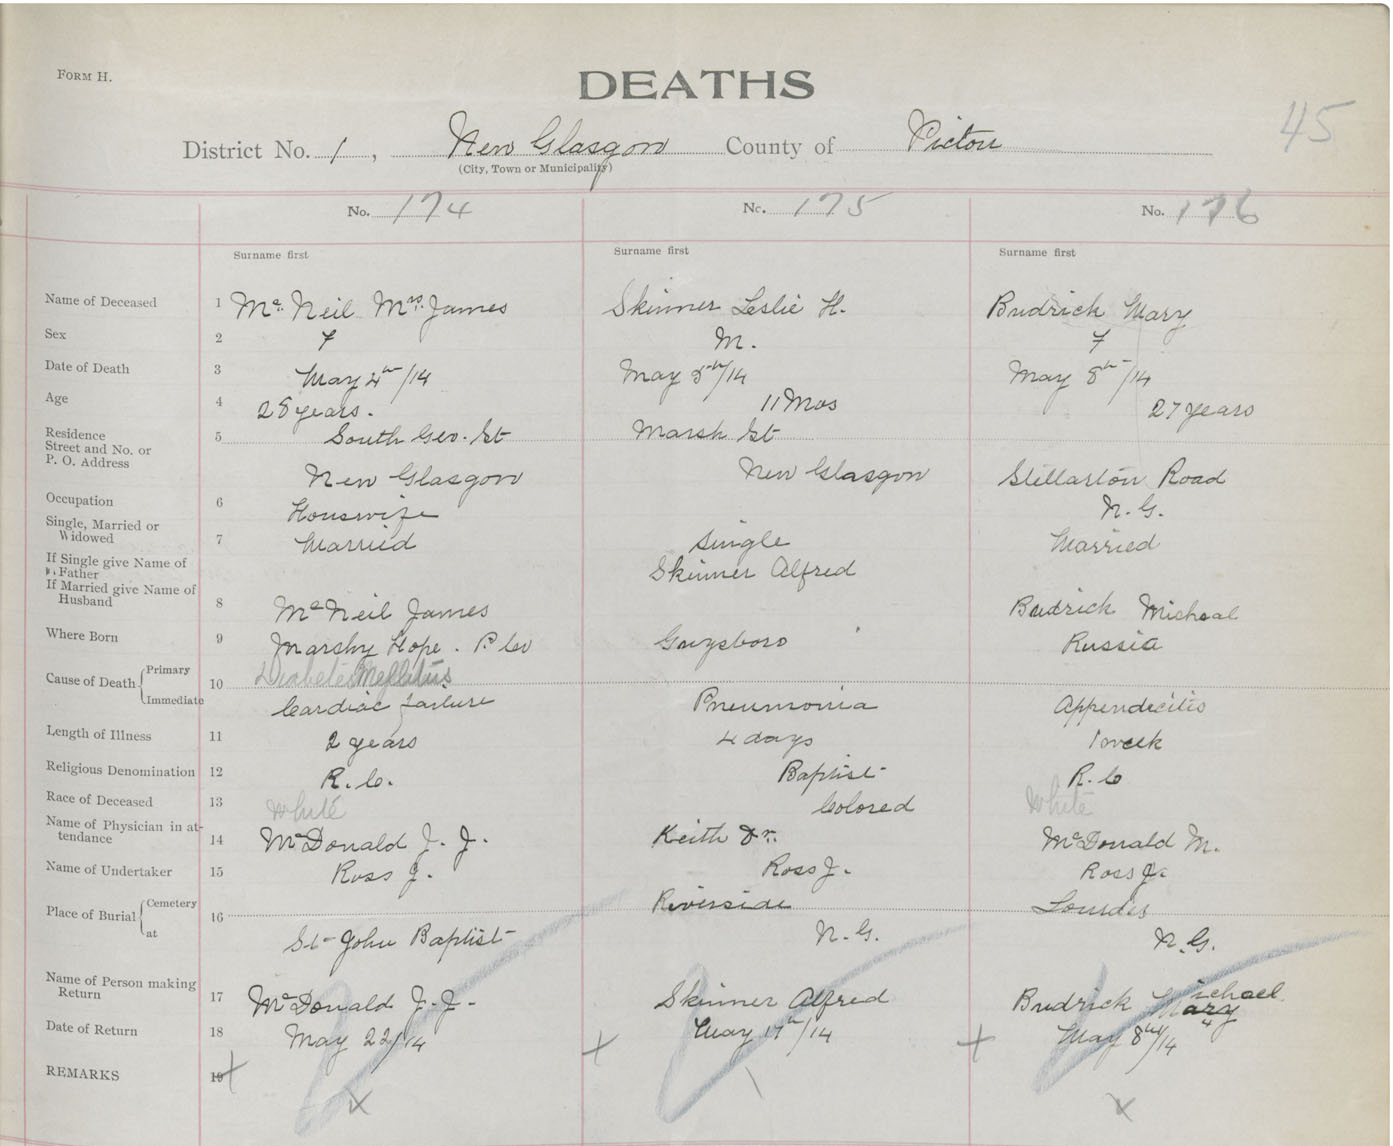 FORM H.
DEATHS
45
District No. 1, New Glasgow County of Pictou
(City, Town or Municipality)
No. 174 No. 175 No. 176
Surname first Surname first Surname first
Name of Deceased 1 Mc Neil Mrs. James Skinner Leslie H. Budrick Mary
Sex 2 F M. F
Date of Death 3 May 4th/14 May 5th/14 May 8th/14
Age 4 28 years. 11 Mos 27 years
Residence Street and No. or P. O. Address 5 South Geo. St Marsh St
New Glasgow New Glasgow Stellarton Road
Occupation 6 Housewife N. G.
Single, Married or Widowed 7 Married Single Married
If Single give Name of Father Skinner Alfred
If Married give Name of Husband 8 McNeil James Budrick Micheal
Where Born 9 Marshy Hope. P. Co Guysboro Russia
Cause of Death Primary 10 Diabetes Mellitus
Immediate Cardiac failure Pneumonia Appendicitis
Length of Illness 11 2 years 4 days 1 week
Religious Denomination 12 R. C. Baptist R. C
Race of Deceased 13 White Colored White
Name of Physician in attendance 14 McDonald J. J. Keith Dr. McDonald M.
Name of Undertaker 15 Ross J. Ross J. Ross J.
Place of Burial Cemetery 16 Riverside Lourdes
at St John Baptist N. G. N. G.
Name of Person making Return 17 McDonald J. J. Skinner Alfred Budrick Michael
Mary
Date of Return 18 May 22/14 May 17th/14 May 8th/14
REMARKS 19